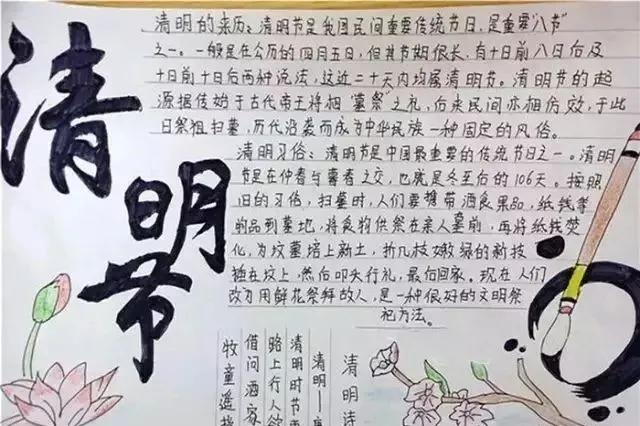 清明节
清明的来历：清明节是我国民间重要传统节日，是重要"八节"
之一。一般是在公历的四月五日，但其节期很长，有十日前八日后及
十日前十日后两种说法，这近二十天内均属清明节。清明节的起
源据传始于古代帝王将相"墓祭"之礼，后来民间亦相仿效，于此
日祭祖扫墓，历代沿袭而成为中华民族一种固定的风俗。
清明习俗：清明节是中国最重要的传统节日之一。清明
节是在仲春与暮春之交，也就是冬至后的106天。按照
旧的习俗，扫墓时，人们要携带酒食果品，纸钱等
物品到墓地，将食物供祭在亲人墓前，再将纸钱焚
化，为坟墓培上新土，折几枝嫩绿的新枝
插在坟上，然后叩头行礼，最后回家。现在人们
改为用鲜花祭拜故人，是一种很好的文明祭
祀方法。
清明诗
清明——唐
清明时节雨
路上行人欲
借问酒家
牧童遥指